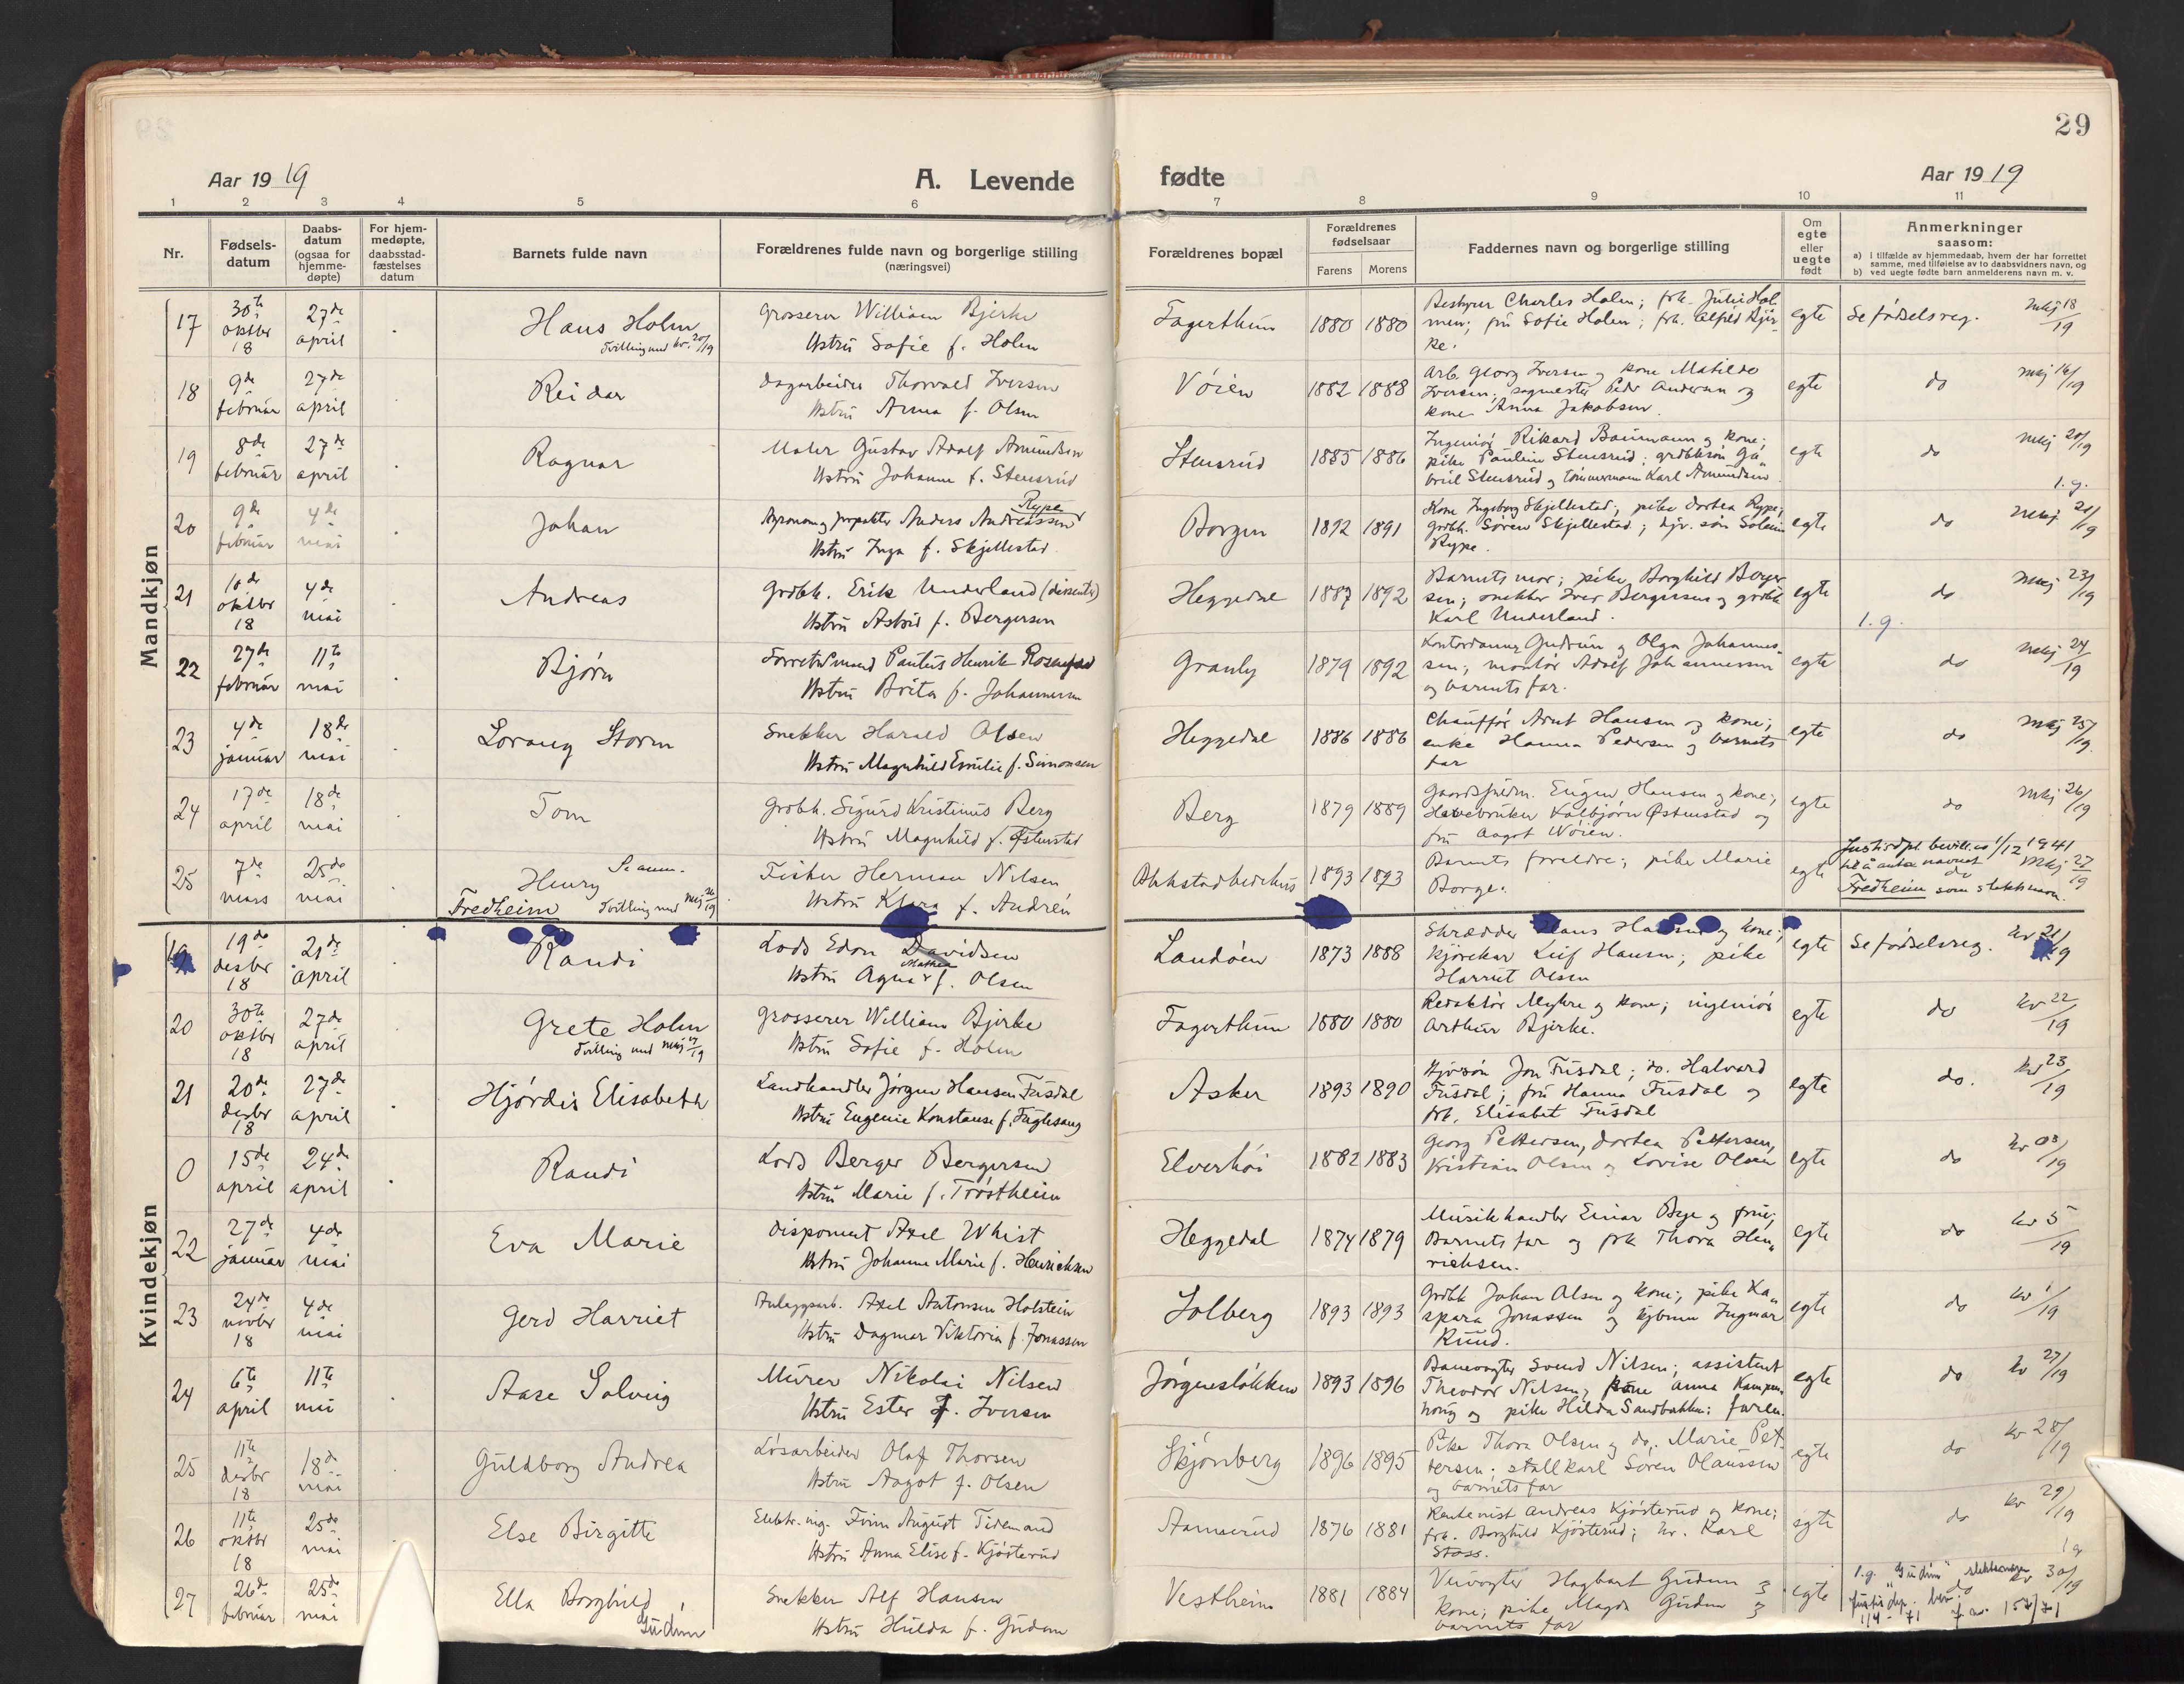 29
Aar 1919
A. Levende fødte
Aar 1919
1 2 3 4 5 6 7 8 9 10 11
Nr.
Fødsels-
datum
Daabs-
datum
(ogsaa for
hjemme-
døpte)
For hjem-
medøpte,
daabsstad-
fæstelses
datum
Barnets fulde navn
Forældrenes fulde navn og borgerlige stilling
(næringsvei)
Forældrenes bopæl
Forældrenes
fødselsaar
Farens Morens
Faddernes navn og borgerlige stilling
Om
egte
eller
uegte
født
Anmerkninger
saasom:
a) i tilfælde av hjemmedaab, hvem der har forrettet
samme, med tilføielse av to daabsvidners navn, og
b) ved uegte fødte barn anmelderens navn m. v.
Mandkjøn
17 30te oktbr 18 27de april
Hans Holm
Tvilling med kv. 20/19
Grosserer William Bjerke
Hstru Sofie f. Holm
Fagerthun 1880 1880
Bestyrer Charles Holm; frk. Julie Hol-
men; fru Sofie Holm; frk. Alfild Bjer-
ke.
egte Se fødselsreg. mkj 18/19
18 9de februar 27de april
Reidar
Dagarbeider Thorvald Iversen
Hstru Anna f. Olsen
Vøien 1882 1888
Arb. Georg Iversen og kone Matilde
Iversen; sagmester Peder Andersen og
kone Anna Jakobsen.
egte do mkj 16/19
19 8de februar 27de april
Ragnar
Maler Gustav Adolf Amundsen
Hstru Johanne f. Stensrud
Stensrud 1885 1886
Ingeniør Rikard Baumann og kone;
pike Pauline Stensrud; grdbkssøn Ga-
briel Stensrud og tømmermann Karl Amundsen.
egte do mkj 20/19
1.g.
20 9de februar 4de mai
Johan
Agronom og forpakter Anders Andreassen Rype
Hstru Inga f. Skjellestad
Borgen 1892 1891
Kone Ingeborg Skjellestad; pike Dortea Rype;
grdbk. Søren Skjellestad; gjv. søn
Rype.
egte do mkj 21/19
21 10de oktbr 18 4de mai
Andreas
Grdbk. Erik Underland (dissenter)
Hstru Astrid f. Bergersen
Heggedal 1887 1892
Barnets mor; pike Borghild Berger-
sen; snekker Iver Bergersen og grdbk
Karl Underland.
egte do mkj 23/19
1.g.
22 27de februar 11te mai
Bjørn
Forretn.mand Paulus Henrik
Hstru Brita f. Johannessen
Granly 1879 1892
Kontordame Gudrun og Olga Johannes-
sen; montør Adolf Johannessen
og barnets far.
egte do mkj 24/19
23 4de januar 18de mai
Lorang Storm
Snekker Harald Olsen
Hstru Magnhild Emilie f. Simonsen
Heggedal 1886 1886
Chauffør Arnt Hansen og kone;
enke Hanna Pedersen og barnets
far
egte do mkj 25/19
24 17de april 18de mai
Tom
Grdbk. Sigurd Kristinus Berg
Hstru Magnhild f. Østenstad
Berg 1879 1889
Gaardsfuldm. Eugen Hansen og kone;
Havebruker Kolbjørn Østenstad og
fru Aagot Vøien.
egte do mkj 26/19
25 7de mars 25de mai
Henry
Fredheim Tvilling med mkj 26/19
Fisker Herman Nilsen
Hstru Klara f. Andrén
1893 1893
Barnets foreldre; pike Marie
Borge.
egte do mkj 27/19
Justisdpt. bevilling 1/12 1941
til å anta navnet
Fredheim som slektsnavn.
Kvindekjøn
19 19de desbr 18 21de april
Randi
Lods Edon Davidsen
Hstru Agna Mathea f. Olsen
Landøen 1873 1888
Skrædder Hans Hansen og kone;
kjørekar Leif Hansen; pike
Harriet Olsen
egte Se fødselsreg. kv 21/19
20 30te oktbr 18 27de april
Grete Holm
Tvilling med mkj 17/19
Grosserer William Bjerke
Hstru Sofie f. Holm
Fagerthun 1880 1880
Redaktør Myhre og kone; ingeniør
Arthur Bjerke.
egte do kv 22/19
21 20de desbr 18 27de april
Hjørdis Elisabeth
Landhandler Jørgen Hansen Fusdal
Hstru Eugenie Konstanse f. Fuglesang
Asker 1893 1890
Gjv.søn Jon Fusdal; do. Halvard
Fusdal; fru Hanna Fusdal og
frk. Elisabet Fusdal
egte do. kv 23/19
0 15de april 24de april
Randi
Lods Berger Bergersen
Hstru Marie f. Trøstheim
Elverhøi 1882 1883
Georg Pettersen, Dortea Pettersen,
Kristian Olsen og Lovise Olsen
egte do kv 08/19
22 27de januar 4de mai
Eva Marie
Disponent Axel Whist
Hstru Johanne Marie f. Henrichsen
Heggedal 1874 1879
Musikhandler Einar Bye og frue;
Barnets far og frk Thora Hen-
richsen.
egte do kv 5/19
23 24de novbr 18 4de mai
Gerd Harriet
Anlægsarb. Axel Antonsen Holstein
Hstru Dagmar Viktoria f. Jonassen
Solberg 1893 1893
Grdbk Johan Olsen og kone; pike Ka-
spara Jonassen og Ingmar
Ruud.
egte do kv 1/19
24 6te april 11te mai
Aase Solveig
Murer Nikolai Nilsen
Hstru Ester f. Iversen
Jørgensløkken 1893 1896
Banevogter Svend Nilsen; assistent
Theodor Nilsen; kone Anna Kampen-
haug og pike Hilda Sandbakken;
egte do kv 27/19
25 11te desbr 18 18de mai
Guldborg Andrea
Løsarbeider Olaf Thorsen
Hstru Aagot f. Olsen
Skjønberg 1896 1895
Pike Thora Olsen og do. Marie Pet-
tersen; stallkarl Søren Olaussen
og barnets far
egte do kv 28/19
26 11te oktbr 18 25de mai
Else Birgitte
Elektr. ing. Finn August Tidemand
Hstru Anna Elise f. Kjøsterud
Aamsrud 1876 1881
Rentenist Andreas Kjøsterud og kone;
frk. Borghild Kjøsterud; hr. Karl
Stass.
egte do kv 29/19
1 g
27 26de februar 25de mai
Ella Borghild
Gudim
Snekker Alf Hansen
Hstru Hulda f. Gudem
Vestheim 1881 1884
Veivogter Hagbart Gudem og
kone; pike Magda Gudem og
barnets far
egte do kv 30/19
1.g. "Gudim" slektsnavn
Justisdep. bev.
1/4-71